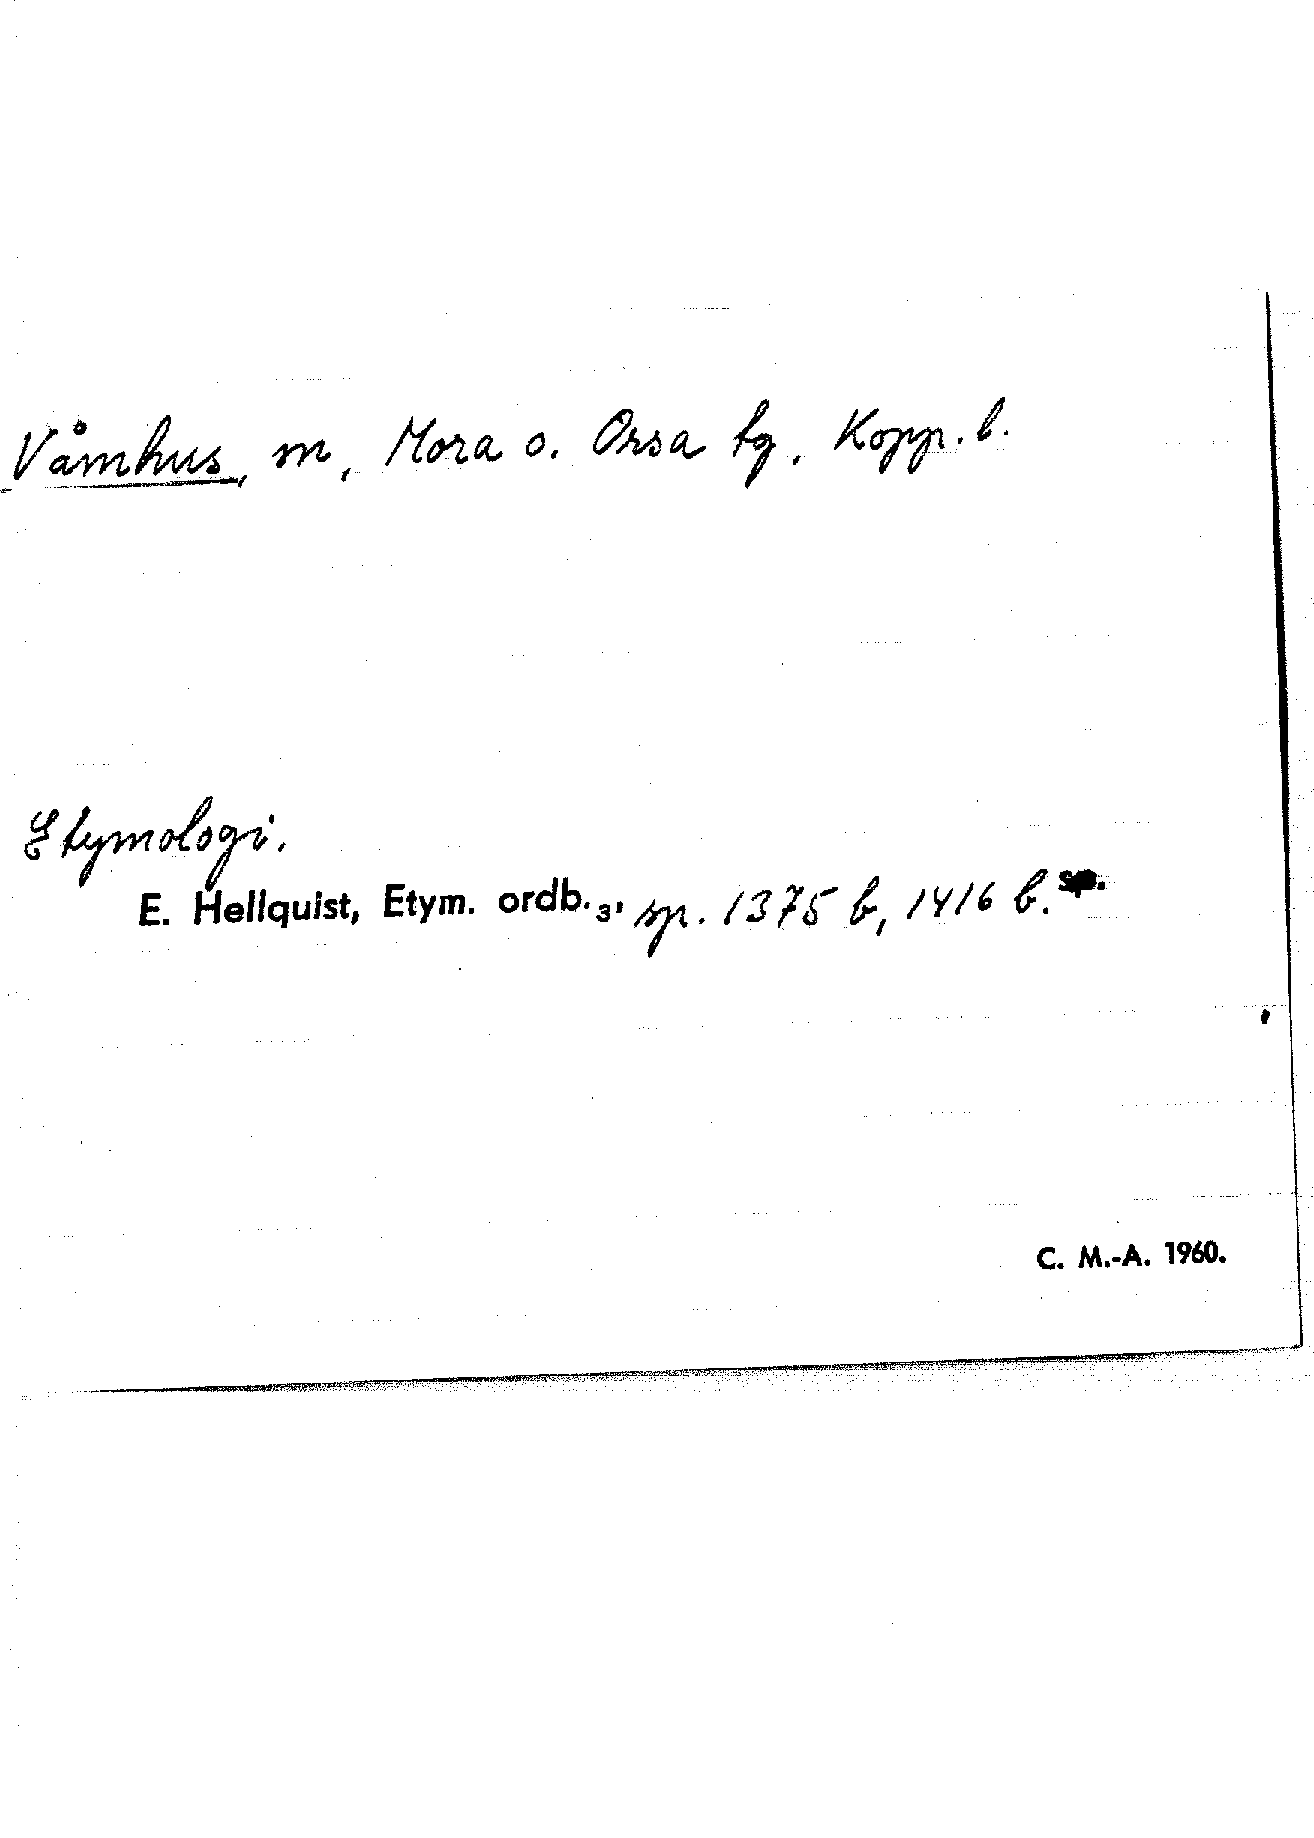 Våmhus, sn, Mora o. Orsa tg, Kopp. l.
Etymologi.
E. Hellquist, Etym. ordb.3, sp. 1375 b, 1416 b.
C. M.-A. 1960.